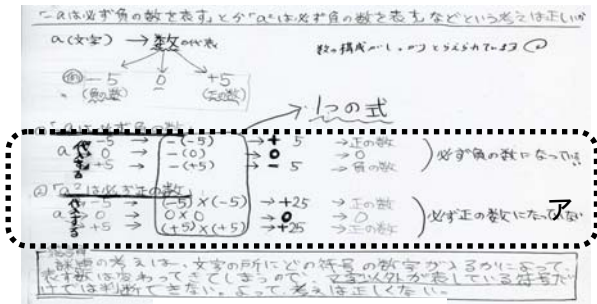 「-aは必ず負の数を表す」とか「a²は必ず正の数を表す」などという考えは正しいか
a(文字) → 数の代表
数の構成がしっかりとらえられています
例 -5 0 +5
(負の数) (正の数)
→ 1つの式
①「-aは必ず負の数」
a 代入する -5 → -(-5) → + 5 → 正の数
0 → -(0) → 0 → 0
+5 → -(+5) → - 5 → 負の数
必ず負の数になっていない
②「a²は必ず正の数」
a 代入する -5 → (-5)×(-5) → +25 → 正の数
→ 0 → 0×0 → 0 → 0
+5 → (+5)×(+5) → +25 → 正の数
必ず正の数になっていない
ア
課題の考えは、文字の所にどの符号の数字が入るかによって、
表す数は変わってきてしまうので、文字以外が表している符号だ
けでは判断できない。よって考えは正しくない。